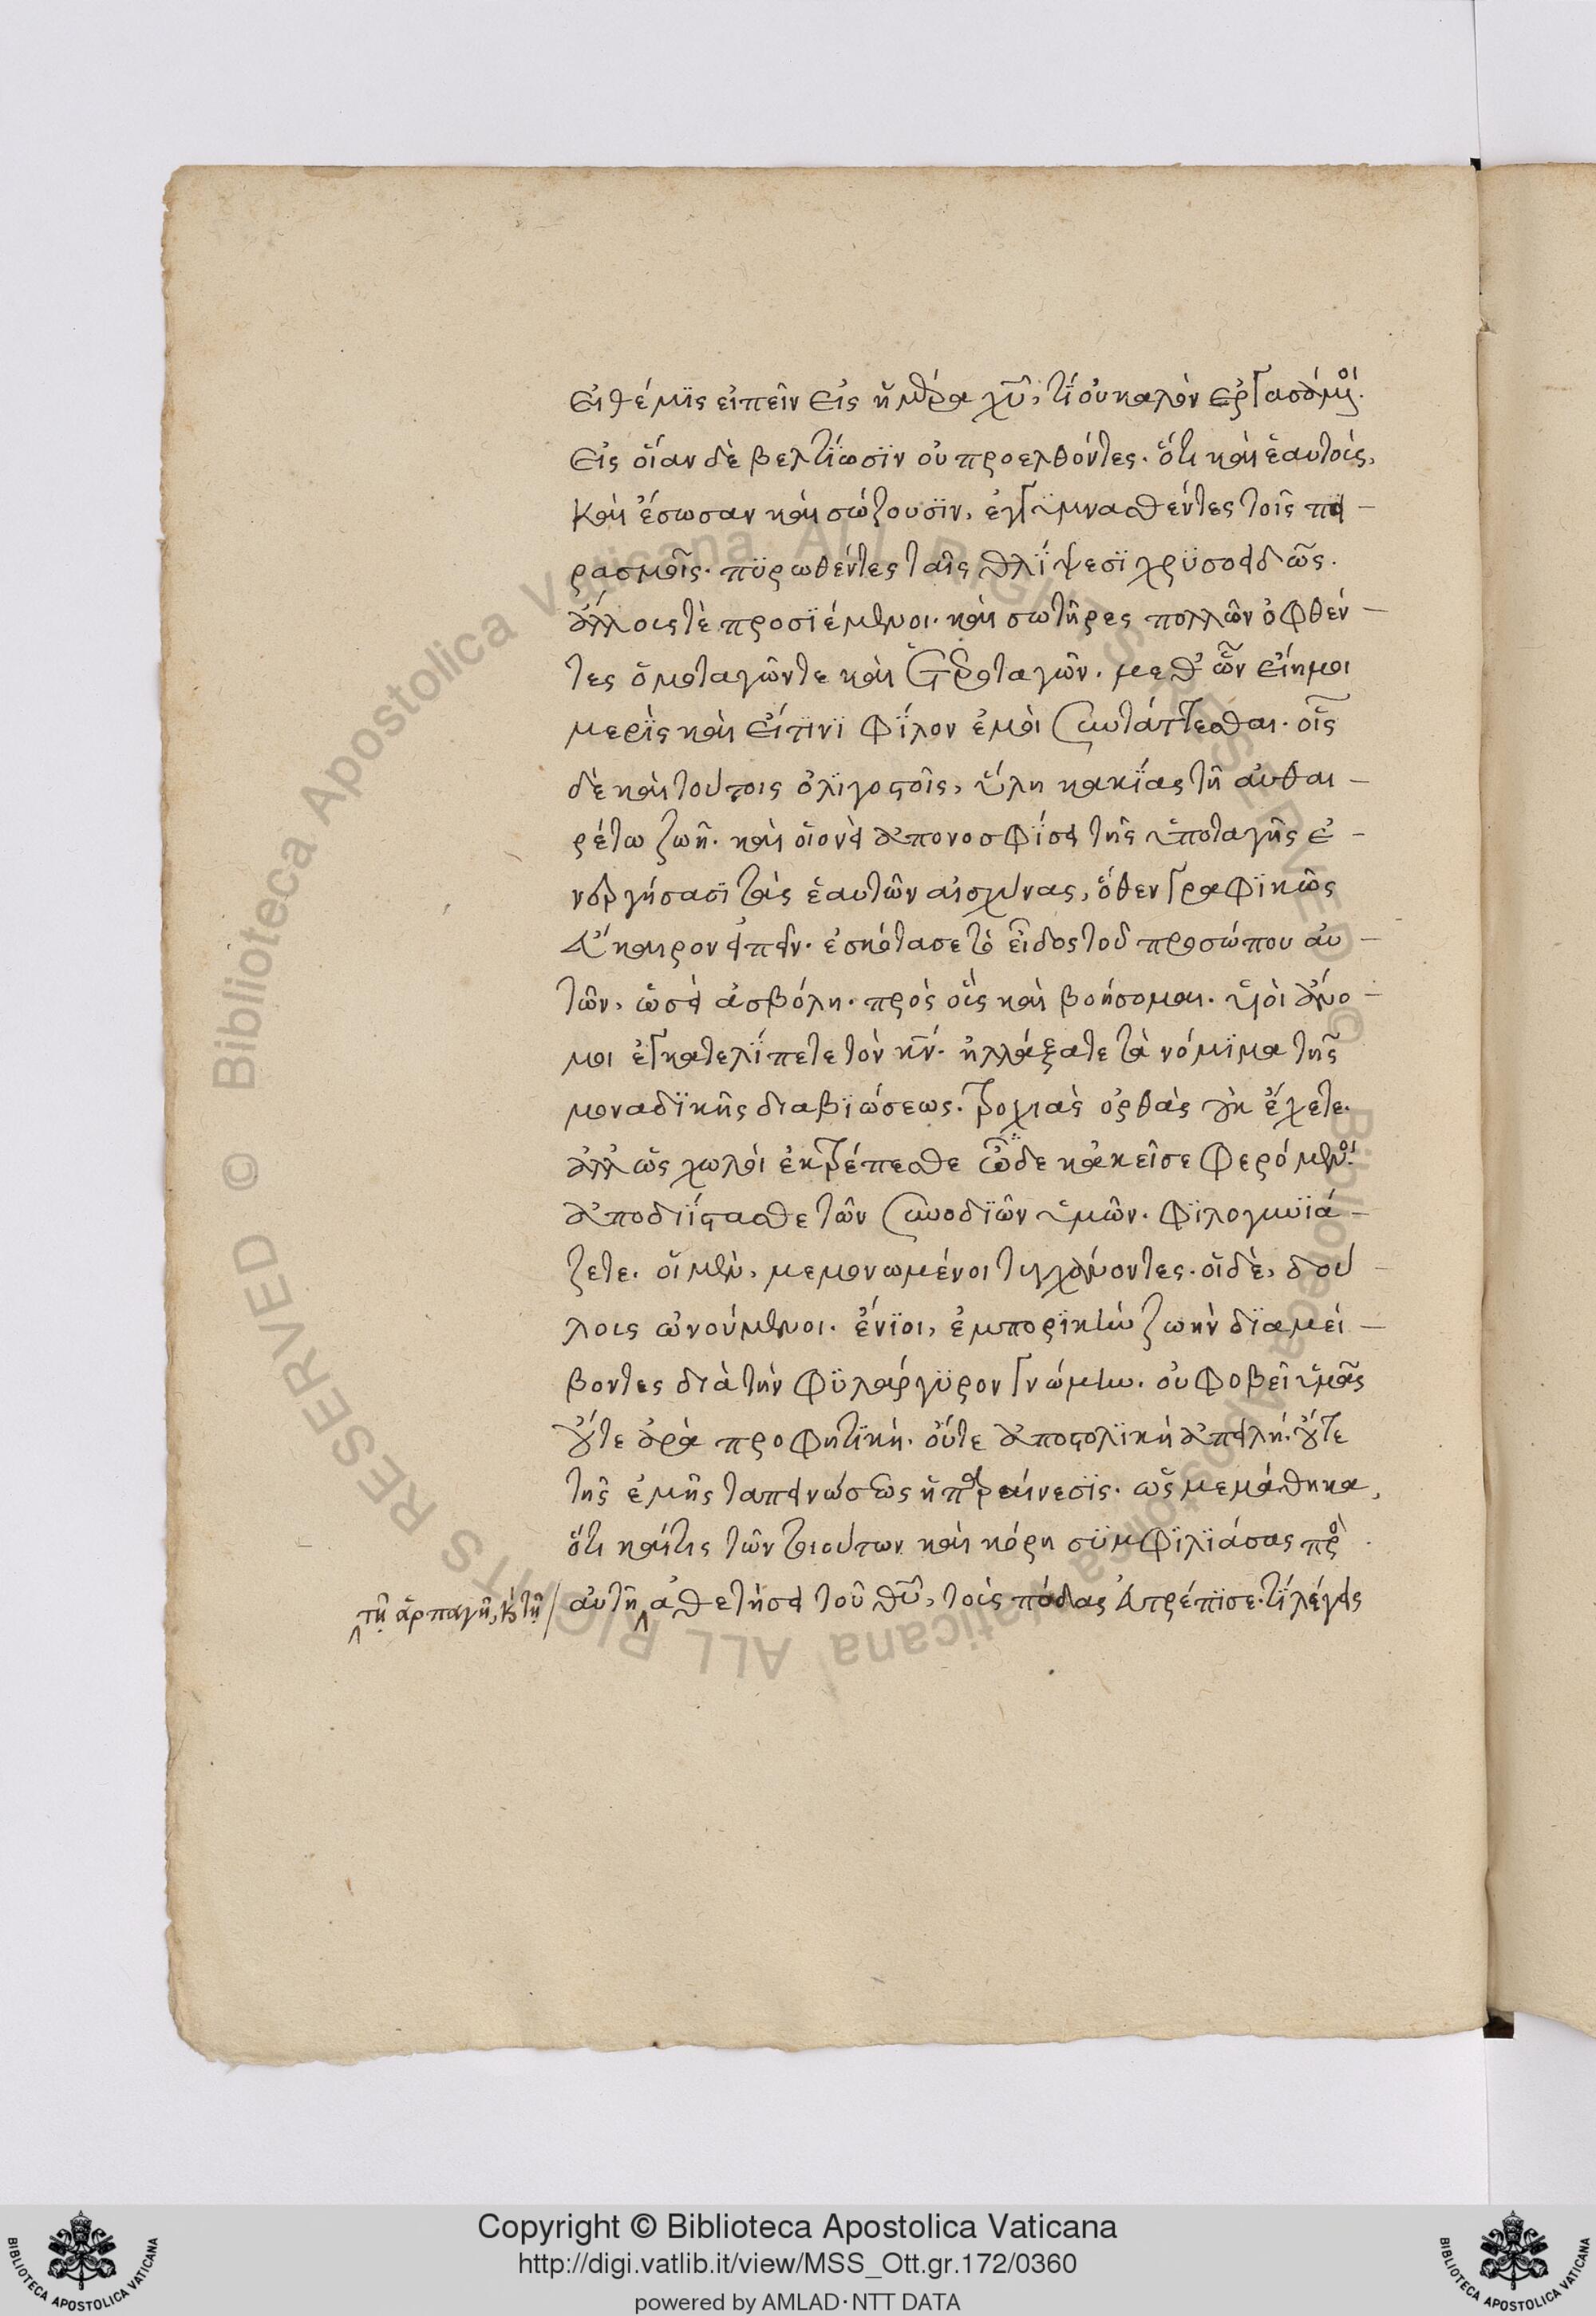 εἰ θέμϊς εἰπεῖν εἰς ἡμέρα χυ̅, τί οὐ καλὸν ἐργασάμενοι.
εἰς οἵαν δὲ βελτΐωσϊν οὐ προελθόντες. ὅτι καὶ ἑαυτοὺς,
καὶ ἔσωσαν καὶ σώζουσϊν, ἐγγϋμνασθέντες τοῖς πει-
ρασμοῖς. πϋρωθέντες ταῖς θλΐψεσϊ χρϋσοειδῶς.
ἄλλοις τὲ προσϊέμενοι. καὶ σωτῆρες πολλῶν ὀφθέν-
τες ὁμοταγῶν τε καὶ ἑτεροταγῶν. μεθ' ὧν εἴη μοι
μερὶς καὶ εἴ τινϊ φΐλον ἐμοὶ συντάττεσθαι. οἷς
δὲ καὶ τούτοις ὀλϊγοστοῖς, ὕλη κακΐας τῆ αὐθαι-
ρέτω ζωῆ. καὶ οἱονεὶ ἀπονοσφΐσει τῆς ὑποταγῆς ἐ-
νεργήσασϊ τὰς ἑαυτῶν αἰσχύνας, ὅθεν γραφϊκῶς
εὔκαιρον εἰπεῖν. ἐσκότασε τὸ εἶδος τοῦ προσώπου αὐ-
τῶν, ὡσεὶ ἀσβόλη. πρὸς οὓς καὶ βοήσομαι. υἱοὶ ἄνο-
μοι ἐγκατελΐπετε τὸν κν̅. ἠλλάξατε τὰ νόμϊμα τῆς
μοναδϊκῆς διαβϊώσεως. τροχιὰς ὀρθὰς οὐκ ἔχετε.
ἀλλ' ὡς χωλοὶ ἐκτρέπεσθε ὧδε κἀκεῖσε φερόμενοι.
ἀποδιΐστασθε τῶν συνοδϊῶν ὑμῶν. φϊλογυνϊά-
ζετε. οἱ μὲν, μεμονωμένοι τυγχάνοντες. οἱ δὲ, δού-
λοις ὠνούμενοι. ἔνϊοι, ἐμπορϊκὴν ζωὴν δϊαμεί-
βοντες διὰ τὴν φϋλαργϋρον γνώμην. οὐ φοβεῖ ὑμᾶς
οὔτε ἀρὰ προφητϊκὴ. οὔτε ἀποστολϊκὴ ἀπειλή. οὔτε
τῆς ἐμῆς ταπεινώσεως ἡ παραίνεσϊς. ὡς μεμάθηκα,
ὅτι καί τις τῶν τοιούτων καὶ κόρη σϋμφϊλϊάσας πρὸς
τῇ ἁρπαγῇ, καὶ τῇ / αὐτῆ ἀθετήσει τοῦ θυ̅, τοὺς πόδας εὐτρέπϊσε. τί λέγεις